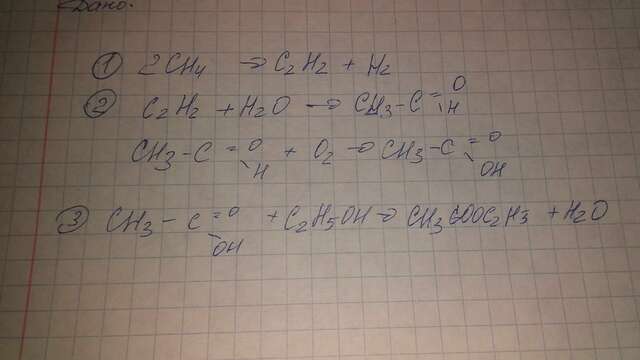 Дано.
① 2CH4 → C2H2 + H2
② C2H2 + H2O → CH3-C=O\H
CH3-C=O\H + O2 → CH3-C=O\OH
③ CH3-C=O\OH + C2H5OH → CH3COOC2H3 + H2O